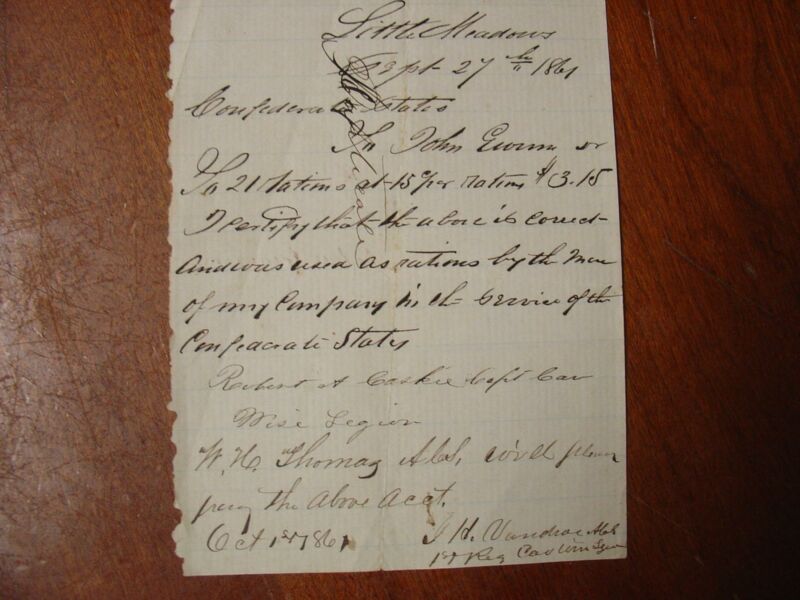 Little Meadows
Sept 27th 1861
Confederate States
To John Ewinn Dr
To 21 rations at 15c per ration $3.15
I certify that the above is correct
and was used as rations by the men
of my Company in the Service of the
Confederate States
Robert A Caskie Capt Cav
Wise Legion
W. H. Thomas will please
pay the above acct.
Oct 1st 1861 J H.
1st Reg Cav Legion